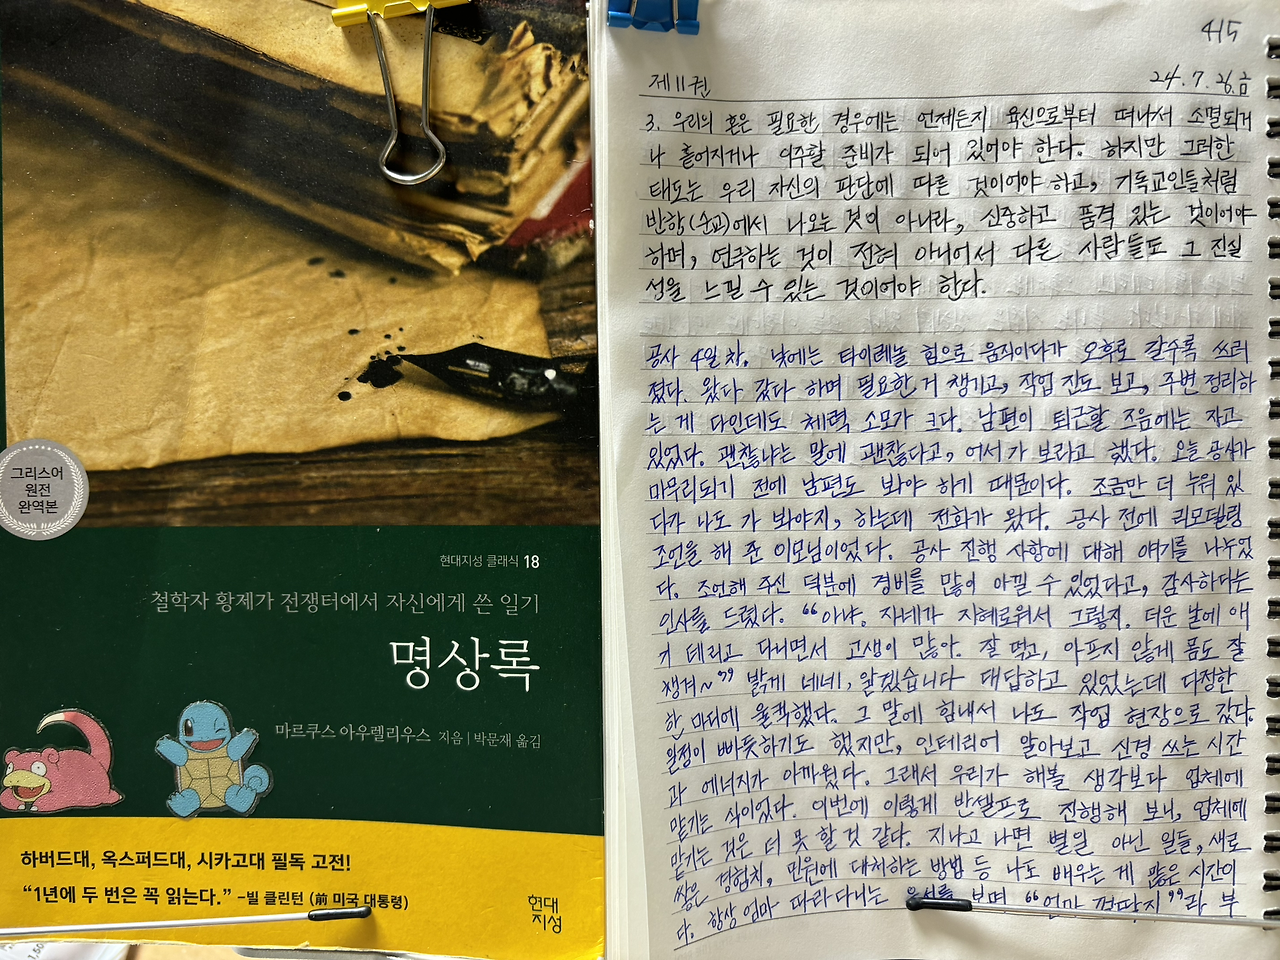 그리스어
원전
완역본
현대지성 클래식 18
철학자 황제가 전쟁터에서 자신에게 쓴 일기
명상록
마르쿠스 아우렐리우스 지음 | 박문재 옮김
하버드대, 옥스퍼드대, 시카고대 필독 고전!
“1년에 두 번은 꼭 읽는다.” -빌 클린턴 (前 미국 대통령)
현대
지성
415
제11권 24.7.26.금
3. 우리의 혼은 필요한 경우에는 언제든지 육신으로부터 떠나서 소멸되거
나 흩어지거나 이주할 준비가 되어 있어야 한다. 하지만 그러한
태도는 우리 자신의 판단에 따른 것이어야 하고, 기독교인들처럼
반항(순교)에서 나오는 것이 아니라, 신중하고 품격 있는 것이어야
하며, 연극하는 것이 전혀 아니어서 다른 사람들도 그 진실
성을 느낄 수 있는 것이어야 한다.
공사 4일 차. 낮에는 타이레놀 힘으로 움직이다가 오후로 갈수록 쓰러
졌다. 왔다 갔다 하며 필요한 거 챙기고, 작업 진도 보고, 주변 정리하
는 게 다인데도 체력 소모가 크다. 남편이 퇴근할 즈음에는 자고
있었다. 괜찮냐는 말에 괜찮다고, 어서 가 보라고 했다. 오늘 공사가
마무리되기 전에 남편도 봐야 하기 때문이다. 조금만 더 누워 있
다가 나도 가 봐야지, 하는데 전화가 왔다. 공사 전에 리모델링
조언을 해 준 이모님이었다. 공사 진행 사항에 대해 얘기를 나누었
다. 조언해 주신 덕분에 경비를 많이 아낄 수 있었다고, 감사하다는
인사를 드렸다. “아냐. 자네가 지혜로워서 그렇지. 더운 날에 애
기 데리고 다니면서 고생이 많아. 잘 먹고, 아프지 않게 몸도 잘
챙겨~” 밝게 네네, 알겠습니다 대답하고 있었는데 다정한
한 마디에 울컥했다. 그 말에 힘내서 나도 작업 현장으로 갔다.
일정이 빠듯하기도 했지만, 인테리어 알아보고 신경 쓰는 시간
과 에너지가 아까웠다. 그래서 우리가 해볼 생각보다 업체에
맡기는 식이었다. 이번에 이렇게 반셀프로 진행해 보니, 업체에
맡기는 것은 더 못 할 것 같다. 지나고 나면 별일 아닌 일들, 새로
쌓은 경험치, 민원에 대처하는 방법 등 나도 배우는 게 많은 시간이
다. 항상 엄마 따라다니는 보며 “엄마 껌딱지”라 부